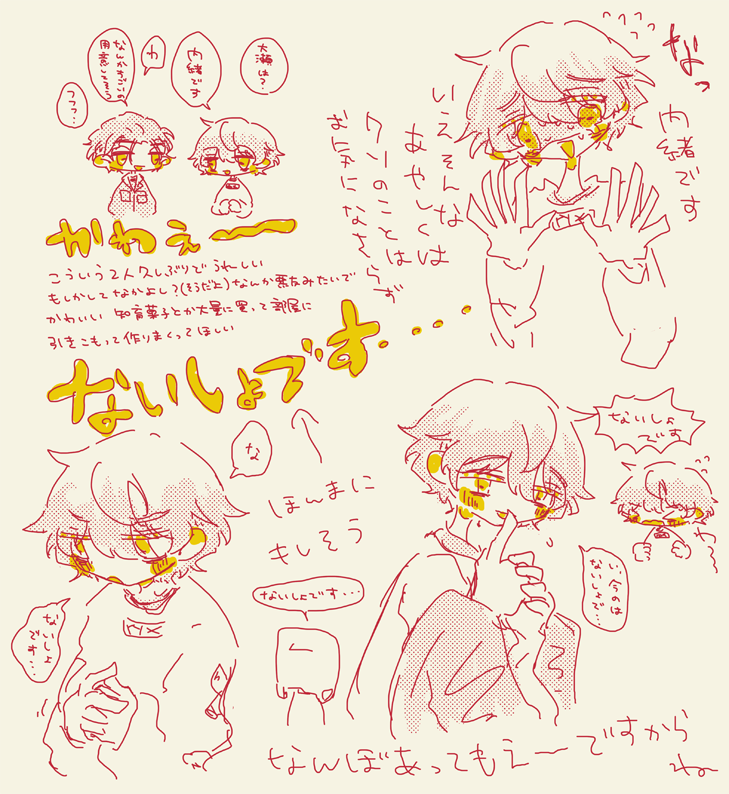 大瀬は?
内緒です
わ
なんかすごいの
用意してそう
フフ…
かわえ〜
こういう2人久しぶりでうれしい
もしかしてなかよし?(そうだよ)なんか親友みたいで
かわいい 知育菓子とか大量に買って部屋に
引きこもって作りまくってほしい
なっ
内緒です
いえそんな
あやしくは
クソのことは
お気になさらず
ないしょです…
な
ほんまに
もしそう
ないしょ
です…
ないしょです…
ないしょ
です
い、今のは
ないしょで…
なんぼあってもえーですから